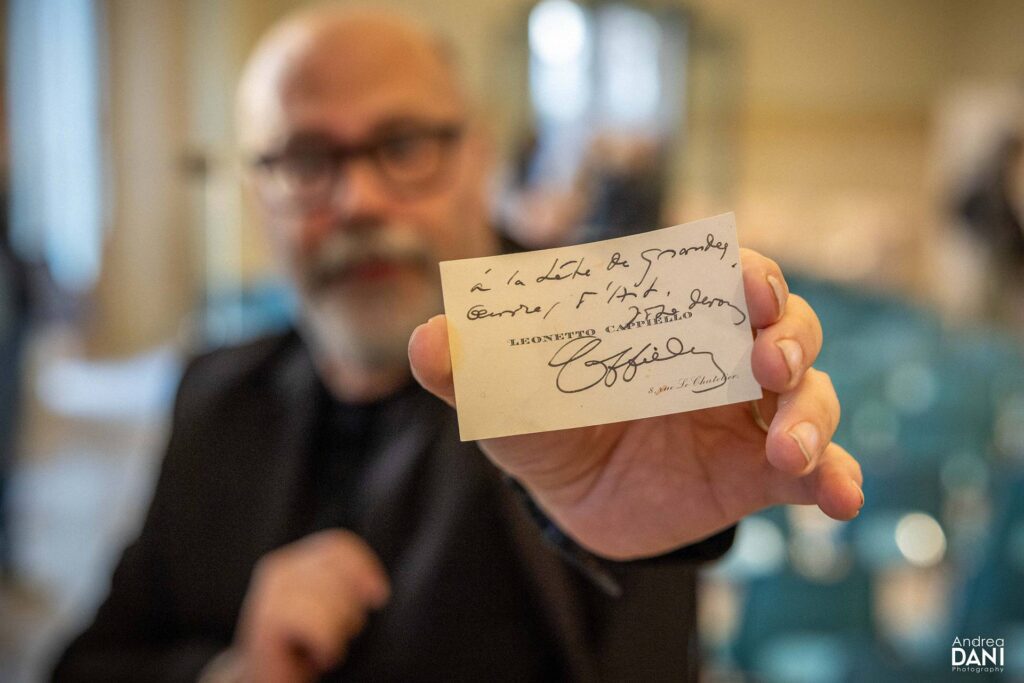 à la tête de grandes
Œuvres, d'Art.
LEONETTO CAPPIELLO
Cappiello
8, rue Le Chatelier
Andrea
DANI
Photography